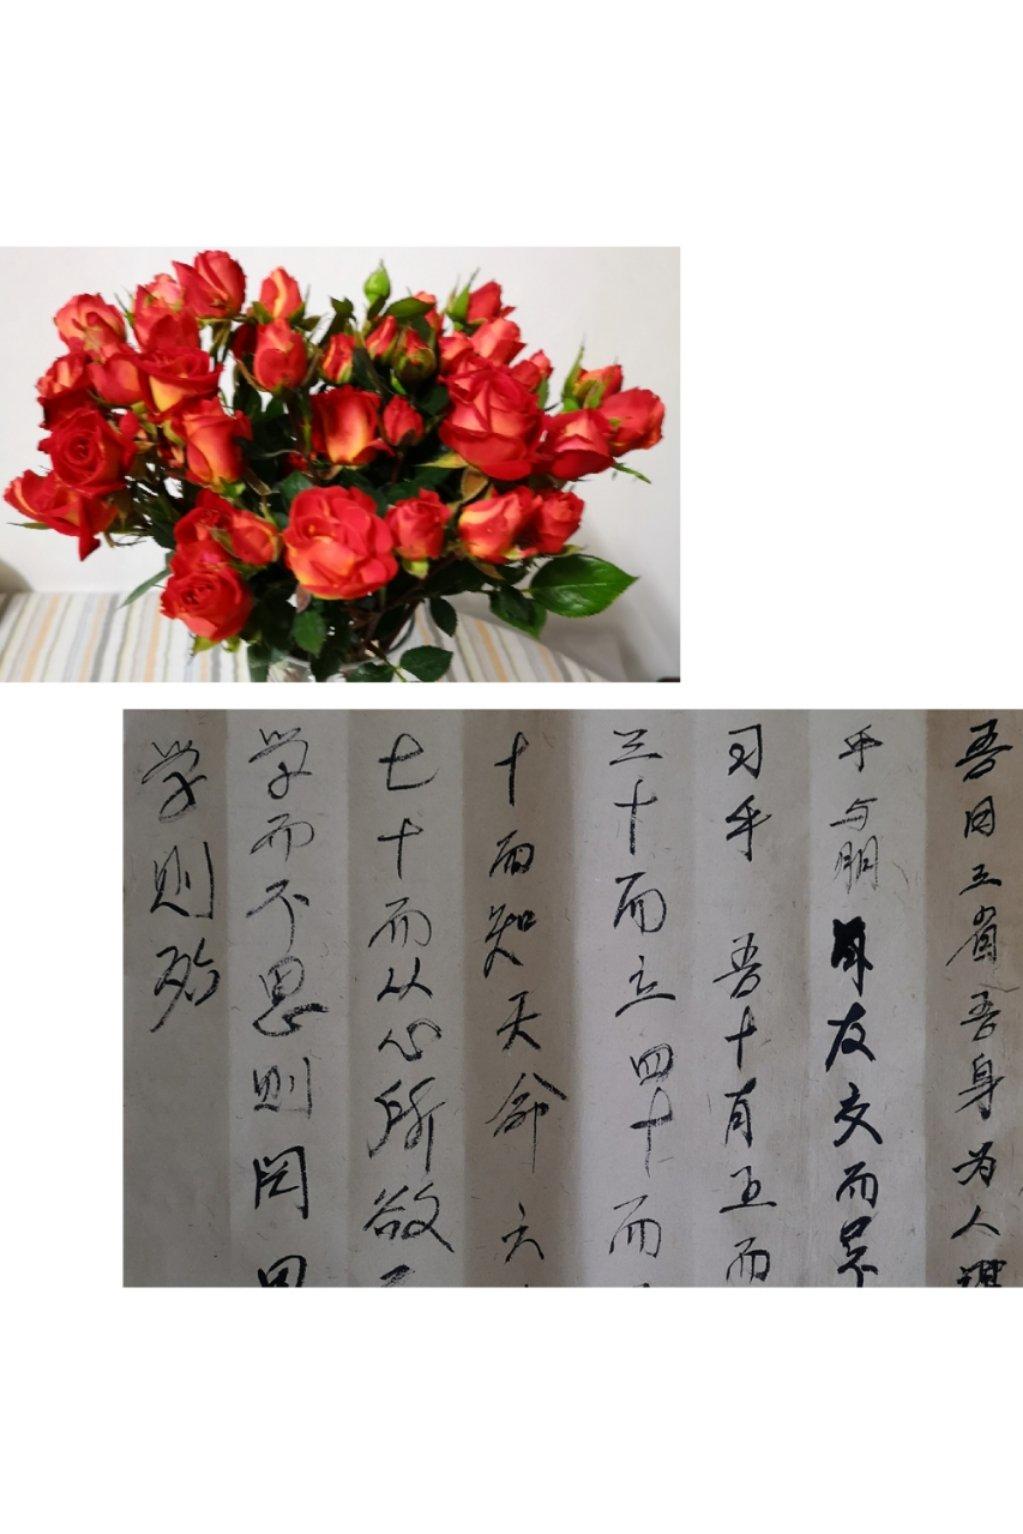 吾日三省吾身为人
乎与朋友交而
习乎 吾十有五而
三十而立四十而
十而知天命 六
七十而从心所欲
学而不思则罔
学则殆